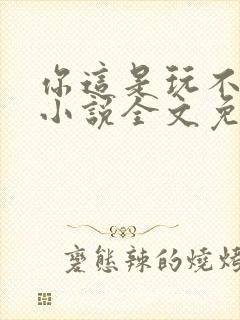 你這是玩不
小說全文免
變態辣的燒烤